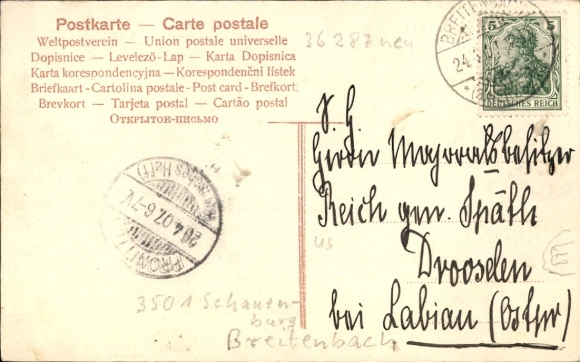 Postkarte — Carte postale
Weltpostverein — Union postale universelle
Dopisnice — Levelező-Lap — Karta Dopisnica
Karta korespondencyjna — Korespondenční lístek
Briefkaart - Cartolina postale - Post card - Brefkort
Brevkort — Tarjeta postal — Cartão postal
Открытое-письмо
36287
BREITENBACH
24.
5 5
DEUTSCHES REICH
S. G
Majoratsbesitzer
Reich gen. Späth
Droosden
bei Labiau (Ostpr)
26.4.07.6-7V
3501 Schauen-
burg
Breitenbach